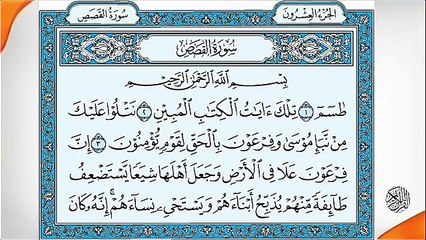 سُورَةُ القَصَصِ
الجُزْءُ العِشْرُونَ
سُورَةُ القَصَصِ
بِسْمِ اللَّهِ الرَّحْمَٰنِ الرَّحِيمِ
طسٓمٓ ١ تِلْكَ ءَايَٰتُ الْكِتَٰبِ الْمُبِينِ ٢ نَتْلُوا۟ عَلَيْكَ
مِن نَّبَإِ مُوسَىٰ وَفِرْعَوْنَ بِالْحَقِّ لِقَوْمٍ يُؤْمِنُونَ ٣ إِنَّ
فِرْعَوْنَ عَلَا فِي الْأَرْضِ وَجَعَلَ أَهْلَهَا شِيَعًا يَسْتَضْعِفُ
طَآئِفَةً مِّنْهُمْ يُذَبِّحُ أَبْنَآءَهُمْ وَيَسْتَحْىِۦ نِسَآءَهُمْ ۚ إِنَّهُۥ كَانَ